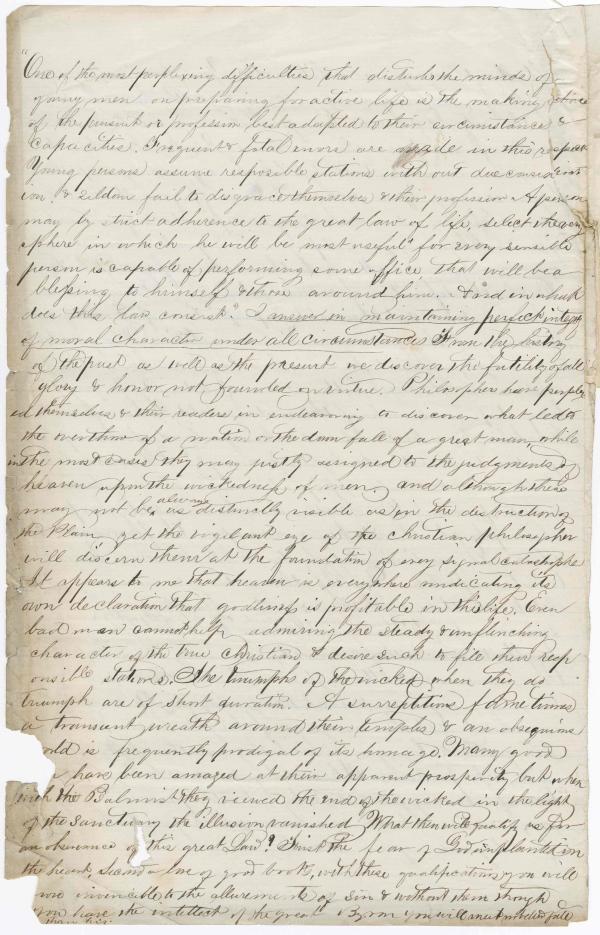 "One of the most perplexing difficulties that disturbs the minds of
young men on preparing for active life is the making choice
of the pursuit or profession best adapted to their circumstance &
capacities. Frequent & fatal errors are made in this respect
Young persons assume resposible stations with out due considerat
ion. & seldom fail to disgrace themselves & their profession A person
may by strict adherence to the great law of life, select the very
sphere in which he will be most useful" for every sensible
person is capable of performing some office that will be a
blessing to himself & those around him. And in what
does this law consist". I answer in maintaining perfect integrity
of moral character under all circumstances From the history
of the past as well as the present we discover the futility of all
glory & honor not founded on virtue. Philosophers have perplex
ed themselves & their readers in endeavoring to discover what led to
the overthrow of a nation or the down fall of a great man, while
in the most cases they may justly assigned to the judgments of
heaven upon the wickedness of men. and although these
may not be always as distinctly visible as in the destruction of
the Plain, yet the vigilant eye of the christian philosopher
will discern them at the foundation of every signal catastrophe
It appears to me that heaven is everywhere vindicating its
own declaration that godliness is profitable in this life. Even
bad men cannot help admiring the steady & unflinching
character of the true christian & desire such to fill their resp
onsible stations. The triumphs of the wicked when they do
triumph are of short duration. A surreptitious fame times
a transient wreath around their temples & an obsequious
orld is frequently prodigal of its homage. Many good
have been amazed at their apparent prosperity but when
with the Psalmist they viewed the end of the wicked in the light
of the sanctuary the illusion vanished What then will qualify us for
an observance of this great Law? First the fear of God implanted in
the heart, Second a love of good books, with these qualifications you will
invincible to the allurements of sin & without them though
you have the intellect of the great Byron you will